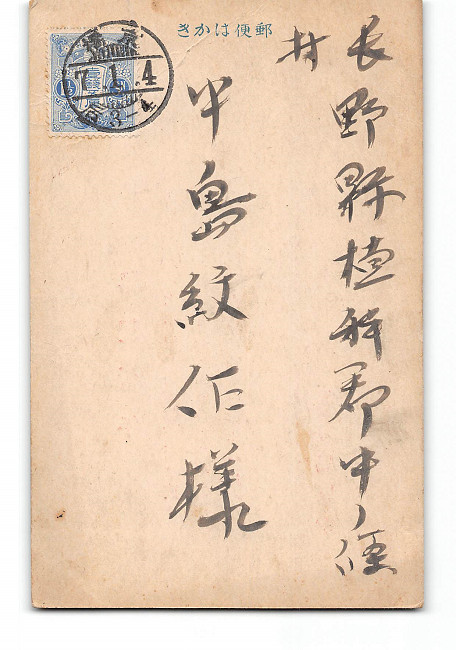 郵便はかき
長野縣植科郡中ノ條
村
中島紋作様
7.1.4
3-4